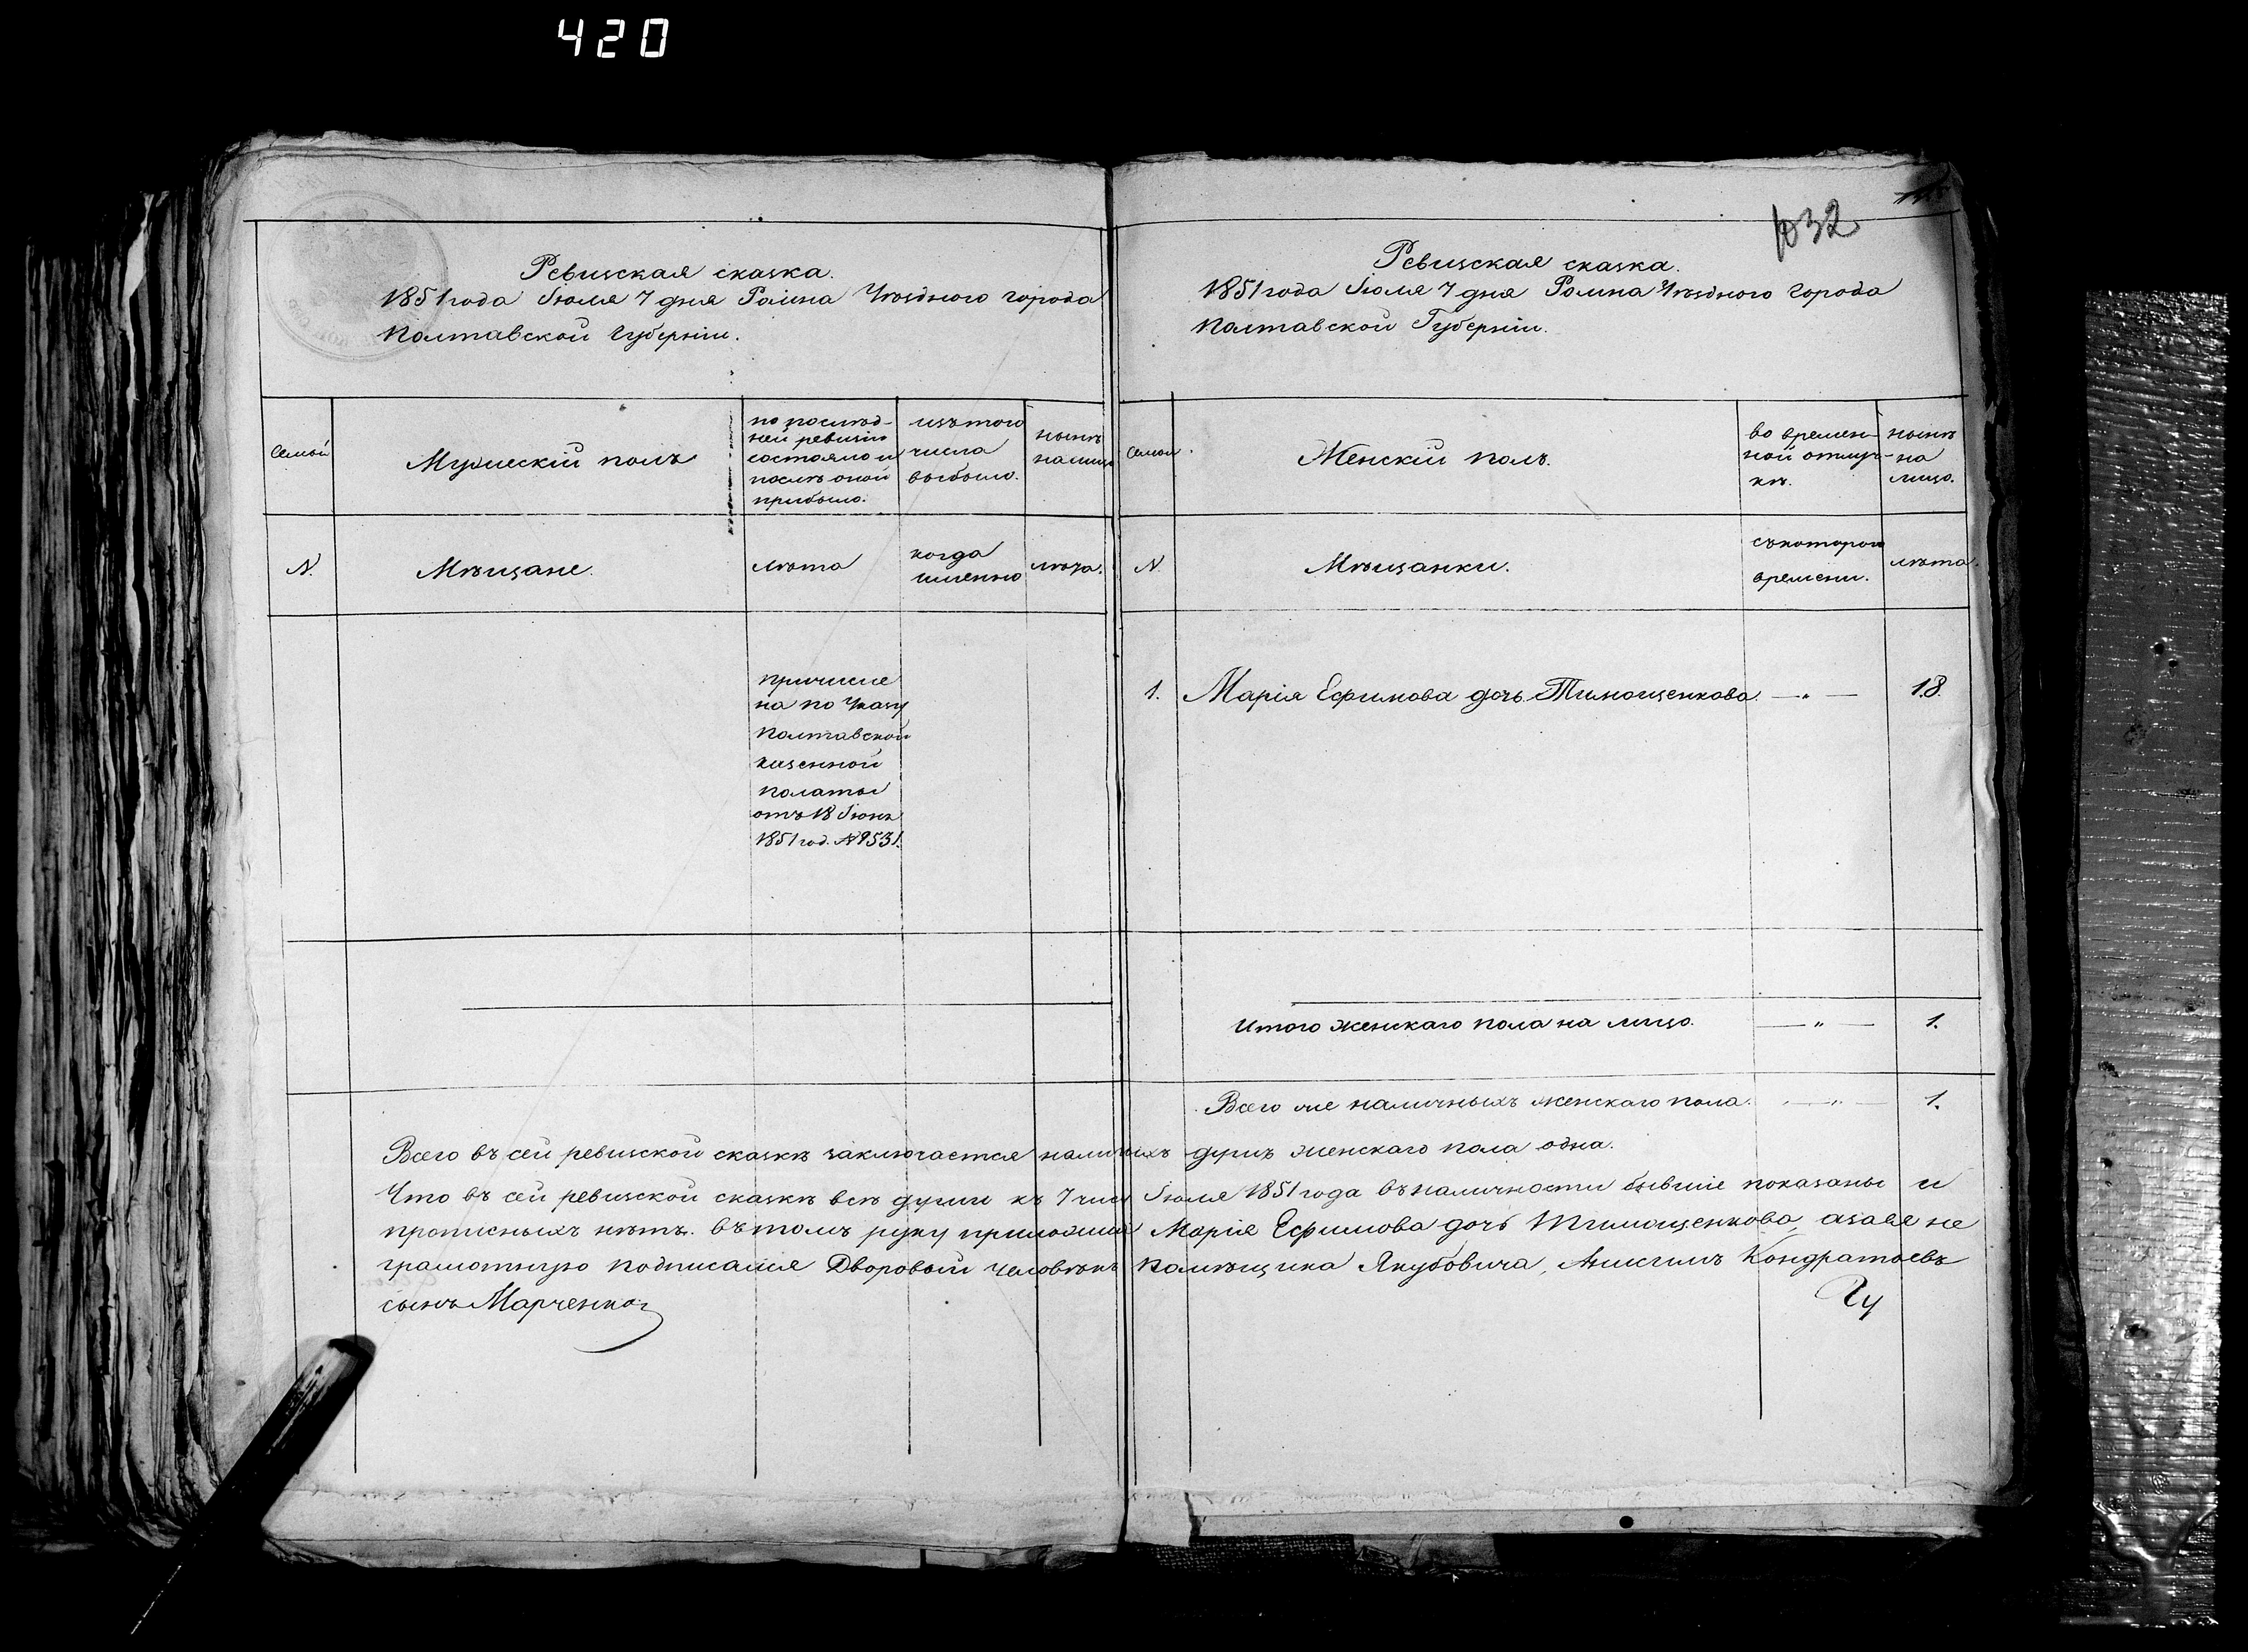 420
1032
Ревизская сказка.
1851 года Іюля 7 дня Ромна Уѣзднаго города
Полтавской Губерніи.
Семьи
Мужескій полъ
по послѣд-
ней ревизіи
состояло и
послѣ оной
прибыло.
изъ того
числа
выбыло.
нынѣ
на лицо
N.
Мѣщане.
лѣта
когда
именно
лѣта.
причисле
на по Указу
Полтавской
казенной
полаты
отъ 18 Іюня
1851 год. № 9531.
Ревизская сказка.
1851 года Іюля 7 дня Ромна Уѣзднаго города
Полтавской Губерніи.
Семьи.
Женскій полъ.
во времен-
ной отлуч-
кѣ.
нынѣ
на
лицо.
N
Мѣщанки.
съ котораго
времени.
лѣта.
1. Марія Ефимова дочь Тимощенкова — „ — 18.
Итого женскаго пола на лицо. — „ — 1.
Всего же наличныхъ женскаго пола. — „ — 1.
Всего въ сей ревизской сказкѣ заключается наличныхъ душъ женскаго пола одна.
Что въ сей ревизской сказкѣ всѣ души къ 7 числу Іюля 1851 года въ наличности бывшіе показаны и
прописныхъ нѣтъ. въ томъ руку приложила Марія Ефимова дочь Тимощенкова, а за ея не
грамотную подписался Дворовый человѣкъ Помѣщика Якубовича, Анисимъ Кондратьевъ
сынъ Марченко